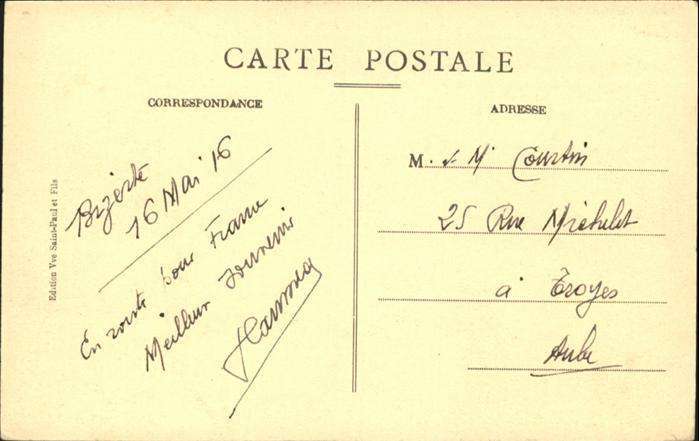 CARTE POSTALE
CORRESPONDANCE
ADRESSE
Edition Vve Saint-Paul et Fils
Bizerte
16 Mai 16
En route pour France
Meilleur Souvenir
M. & Mr Courtin
25 Rue Michelet
à Troyes
Aube